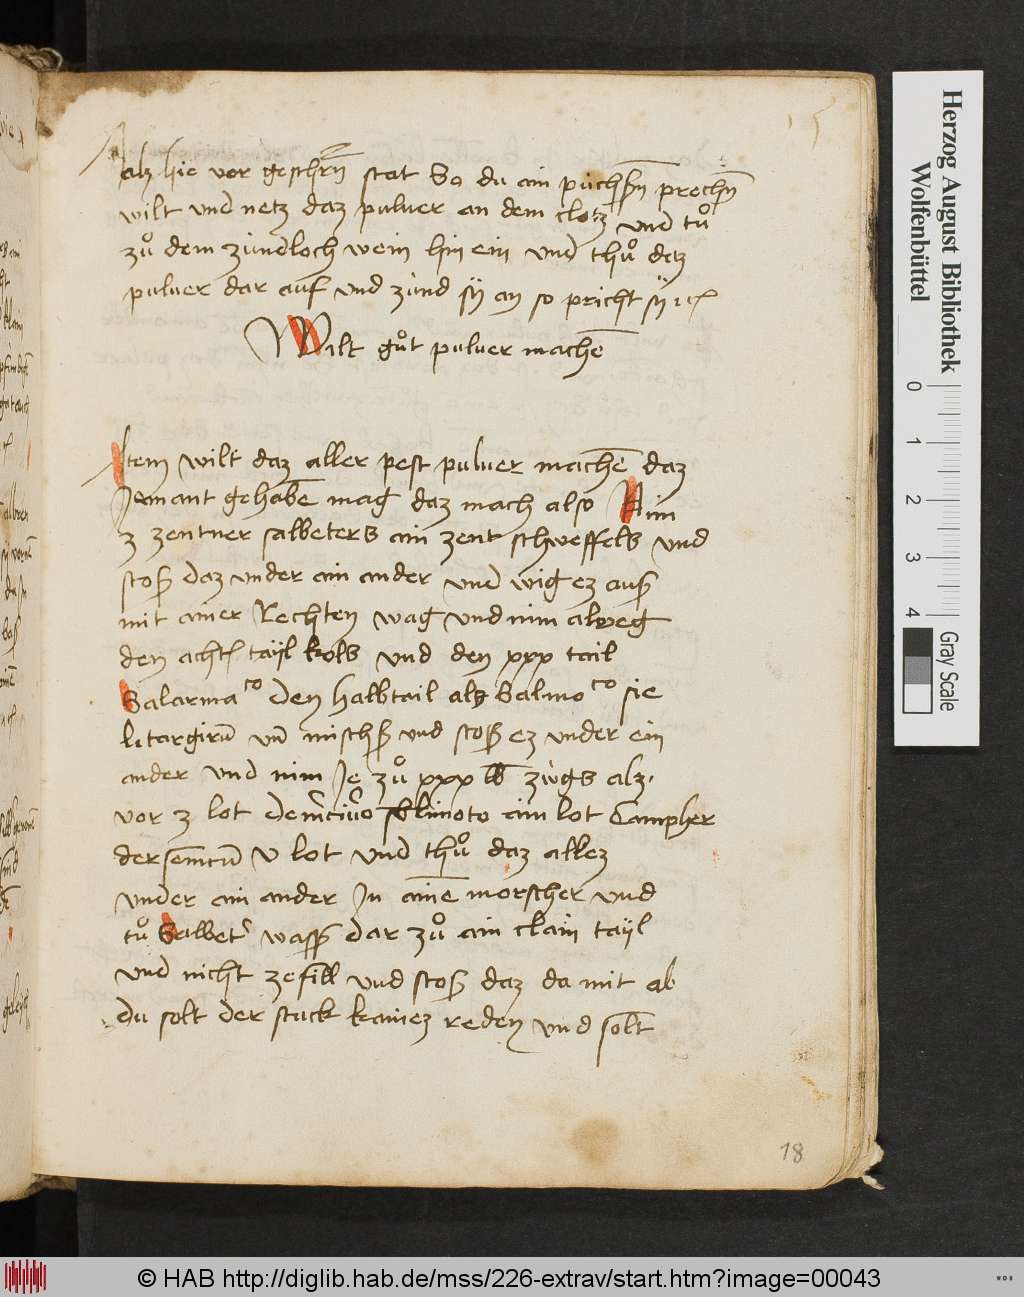 alz hie vor geschrn stat So du ain püchsn prechn
wilt vnd netz daz puluer an dem clotz vnd tuͦ
zuͦ dem zündloch wein hin ein vnd thuͦ daz
puluer dar auf vnd zünd sÿ an so pricht sÿ
Wilt guͦt puluer machē
Item wilt daz aller pest puluer machē daz
Jemant gehabē mag daz mach also Nim
z zentner salbeters ain zent schweffels vnd
stoß daz vnder ain ander vnd wig ez auß
mit ainer Rechten wag vnd nim alweg
den acht taÿl kols vnd den xxx tail
Salarmaco den halbtail alz Salmoco sie
litargirū vn̄ misch vnd stoß ez vnder ein
ander vnd nim Je zuͦ xxx lb zwgs alz
vor z lot ain lot Campher
der v lot vnd thuͦ daz allez
vnder ain ander In ainē morscher vnd
tuͦ Salbet waß dar zuͦ ain clain taÿl
vnd nicht zefill vnd stoß daz da mit ab
du solt der stuck kainez reden vnd solt
18
Herzog August Bibliothek
Wolfenbüttel
0 1 2 3 4
Gray Scale
© HAB http://diglib.hab.de/mss/226-extrav/start.htm?image=00043